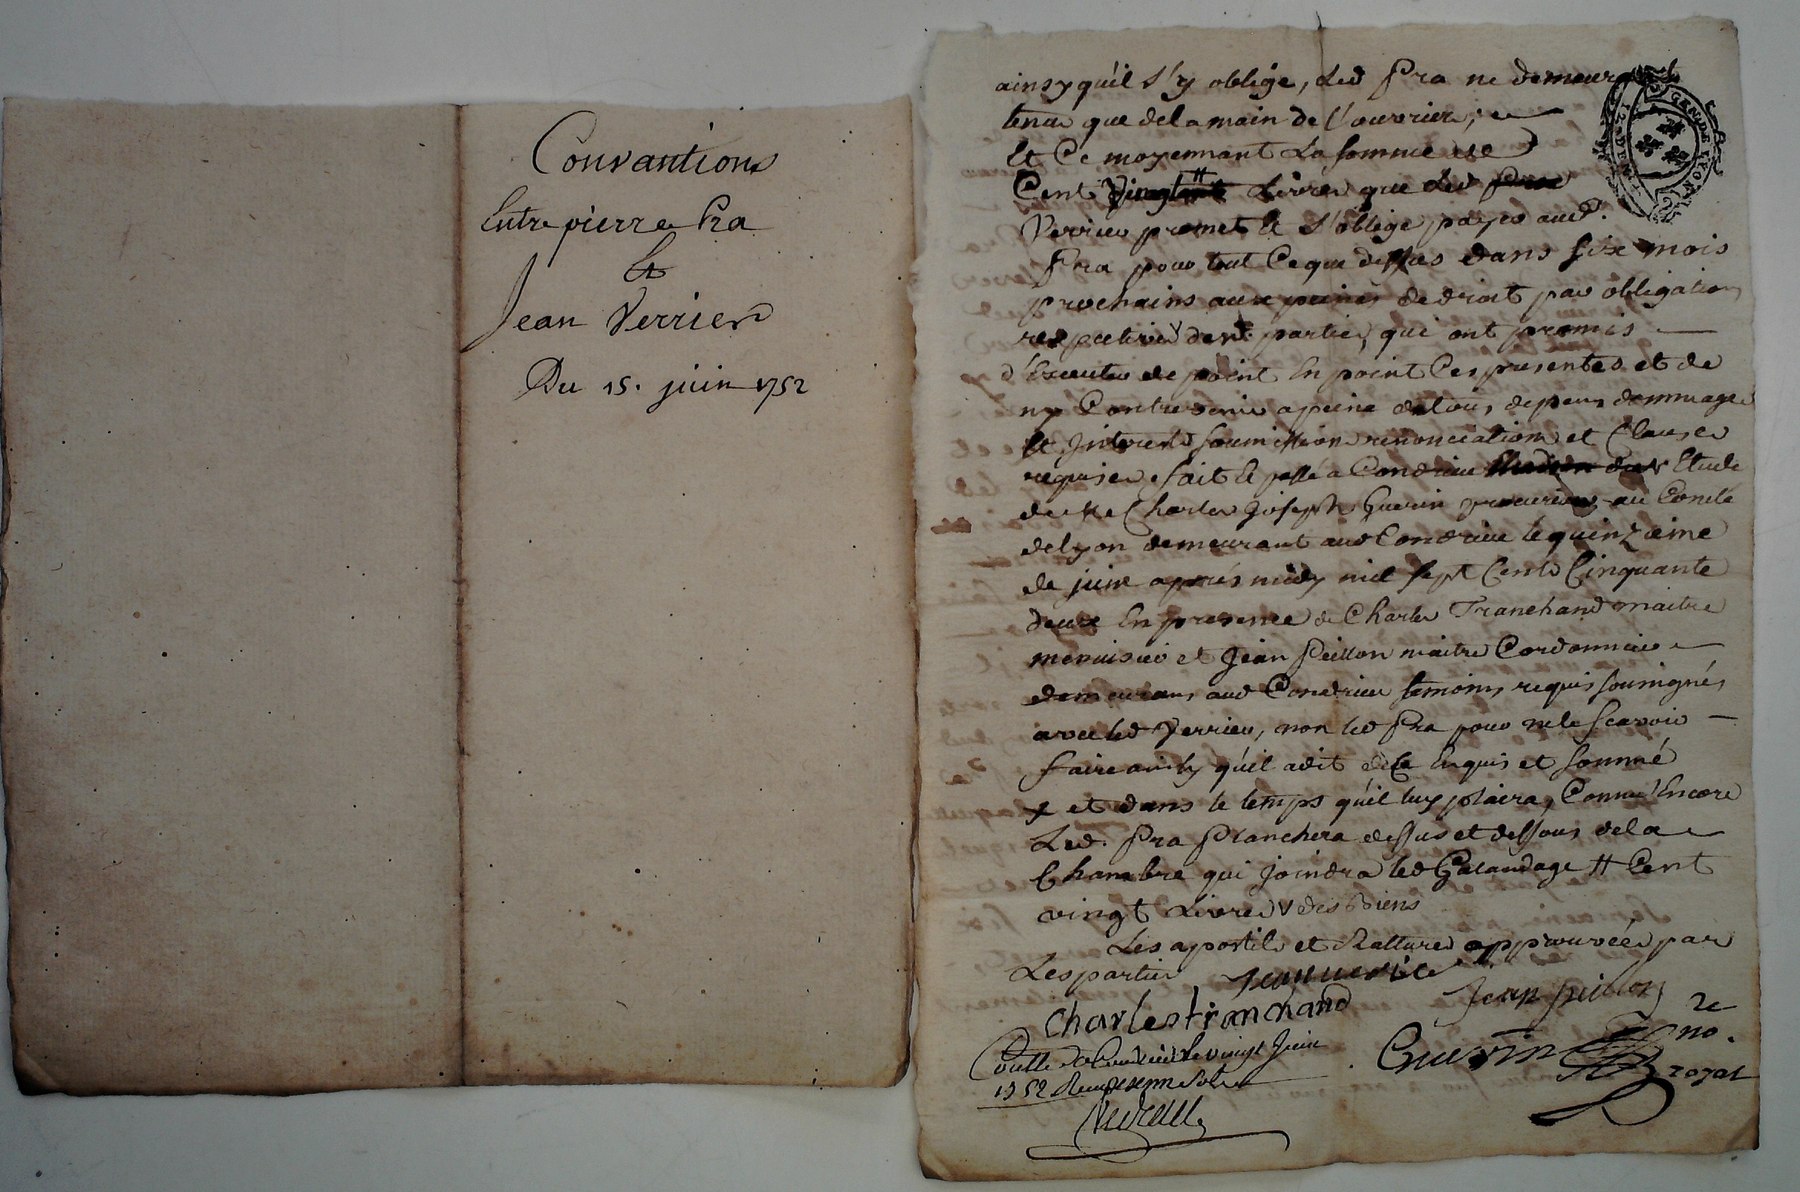 Convantions
Entre pierre Pra
Et
Jean Verrier
Du 15. juin 1752
ainsy qu'il s'y oblige, Led Pra ne demeurant
tenu que de la main de l'ouvrier,
Et Ce moyennant La somme de
Cent Livres que Led
Verrier promet et s'oblige payer aud.
Pra pour tout Ce que dessus dans six mois
prochains aux peines de droit par obligation
respective v des partie, qui ont promis
d'Executer de point En point Ces presentes et de
ny Contrevenir a peine de tous depens dommage
Et Interests soumission renonciation et Clauses
requises, fait et passé a Condrieu Etude
de Me Charles Joseph Guerin procureur au Comté
de Lyon demeurant aud Condrieu le quinzieme
de juin après midy mil sept Cents Cinquante
deux En presence de Charles Tranchand maitre
menuisier et Jean Peillon maitre Cordonnier
demeurans aud Condrieu temoins requis soussignés
avec led Verrier, non led Pra pour ne le scavoir
faire ainsy qu'il a dit de ce Enquis et sommé
x et dans le temps qu'il luy plaira, Comme Encore
Led. Pra Planchera dessus et dessous de la
Chambre qui joindra led Galandage # Cent
vingt Livres v des Biens
Les apostils et Ratture approuvées par
Les parties Jean verrier
Jean peillon
Charles tranchand
Guerin no. re
royal
Conllé a Condrieu le vingt Juin
1752 Reçu
GEN. DE LYON